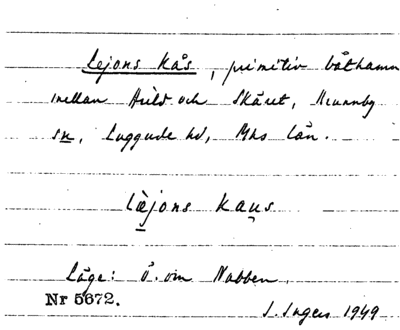 Lejons kås, primitiv båthamn
mellan Arild och Skäret, Brunnby
sn, Luggude hd, Mhs län.
Læjons kaụs
Läge: ö. om Nabben.
Nr 5672.
S. Ingers 1949